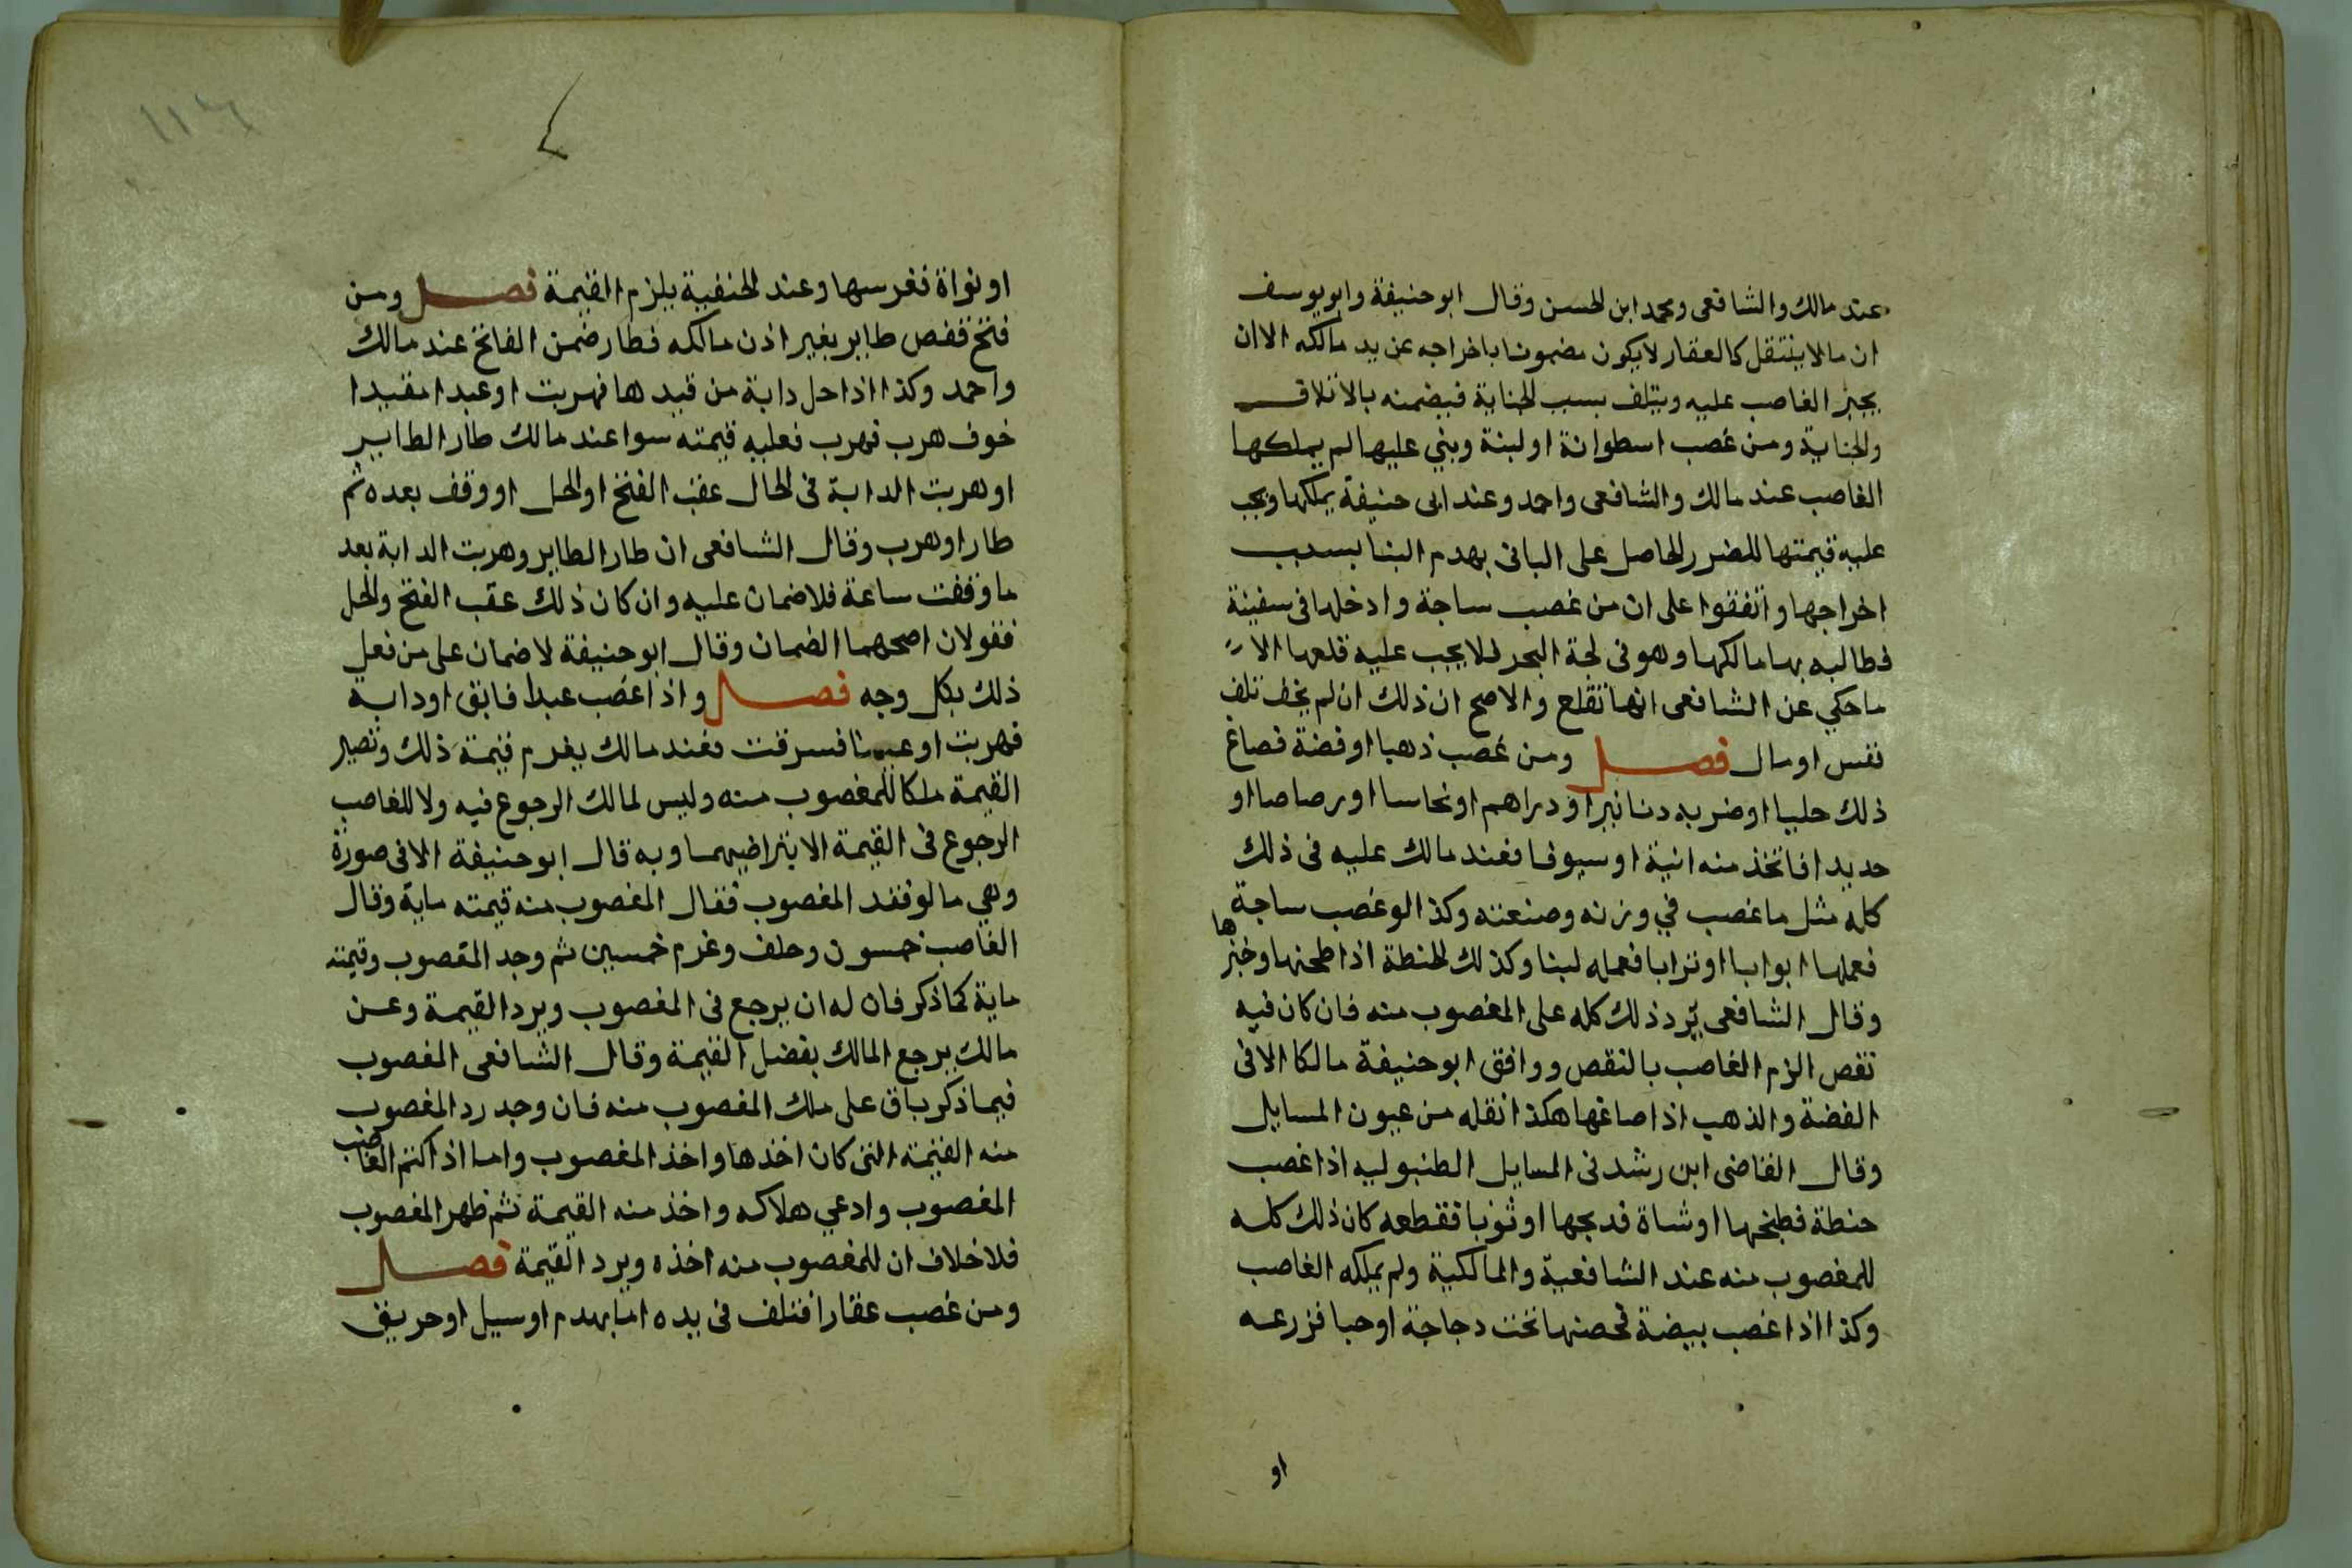 عند مالك والشافعى ومحمد ابن الحسن وقال ابو حنيفة وابو يوسف
ان ما لا ينتقل كالعقار لا يكون مضمونا باخراجه عن يد مالكه الا ان
يجبر الغاصب عليه ويتلف بسبب الجناية فيضمنه بالاتلاف
والجناية ومن غصب اسطوانة او لبنة وبني عليها لم يملكها
الغاصب عند مالك والشافعى واحمد وعند ابى حنيفة يملكها ويجب
عليه قيمتها للضرر الحاصل على البانى بهدم البنا بسبب
اخراجها واتفقوا على ان من غصب ساجة وادخلها فى سفينة
فطالبه بها مالكها وهو فى لجة البحر فلا يجب عليه قلعها الا
ما حكي عن الشافعى انها تقلع والاصح ان ذلك ان لم يخف تلف
نفس او مال فصل ومن غصب ذهبا او فضة فصاغ
ذلك حليا او ضربه دنانيرا او دراهم او نحاسا او رصاصا او
حديدا فاتخذ منه انية او سيوفا فعند مالك عليه فى ذلك
كله مثل ما غصب في وزنه وصنعته وكذا لو غصب ساجة
فعملها ابوابا او ترابا فعمله لبنا وكذلك الحنطة اذا طحنها وخبزها
وقال الشافعى يرد ذلك كله على المغصوب منه فان كان فيه
نقص الزم الغاصب بالنقص ووافق ابو حنيفة مالكا الا فى
الفضة والذهب اذا صاغها هكذا نقله من عيون المسايل
وقال القاضى ابن رشد فى المسايل الطنبوليه اذا غصب
حنطة فطبخها او شاة فذبحها او ثوبا فقطعه كان ذلك كله
للمغصوب منه عند الشافعية والمالكية ولم يملكه الغاصب
وكذا اذا غصب بيضة فحصنها تحت دجاجة او حبا فزرعه
او
١١٦
او نواة فغرسها وعند الحنفية يلزم القيمة فصل ومن
فتح قفص طاير بغير اذن مالكه فطار ضمن الفاتح عند مالك
واحمد وكذا اذا حل دابة من قيدها فهربت او عبدا مقيدا
خوف هرب فهرب فعليه قيمته سوا عند مالك طار الطاير
او هربت الدابة فى الحال عقب الفتح او الحل او وقف بعده ثم
طار او هرب وقال الشافعى ان طار الطاير وهربت الدابة بعد
ما وقفت ساعة فلا ضمان عليه وان كان ذلك عقب الفتح والحل
فقولان اصحهما الضمان وقال ابو حنيفة لا ضمان على من فعل
ذلك بكل وجه فصل واذا غصب عبدا فابق او دابة
فهربت او عينا فسرقت فعند مالك يغرم قيمة ذلك وتصير
القيمة ملكا للمغصوب منه وليس لمالك الرجوع فيه ولا للغاصب
الرجوع فى القيمة الا بتراضيهما وبه قال ابو حنيفة الا فى صورة
وهي ما لو فقد المغصوب فقال المغصوب منه قيمته ماية وقال
الغاصب خمسون وحلف وغرم خمسين ثم وجد المغصوب وقيمته
ماية كما ذكر فان له ان يرجع فى المغصوب ويرد القيمة وعن
مالك يرجع المالك بفضل القيمة وقال الشافعى المغصوب
فيما ذكر باق على ملك المغصوب منه فان وجد رد المغصوب
منه القيمة التى كان اخذها واخذ المغصوب واما اذا كتم الغاصب
المغصوب وادعي هلاكه واخذ منه القيمة ثم ظهر المغصوب
فلا خلاف ان للمغصوب منه اخذه ويرد القيمة فصل
ومن غصب عقارا فتلف فى يده اما بهدم او سيل او حريق